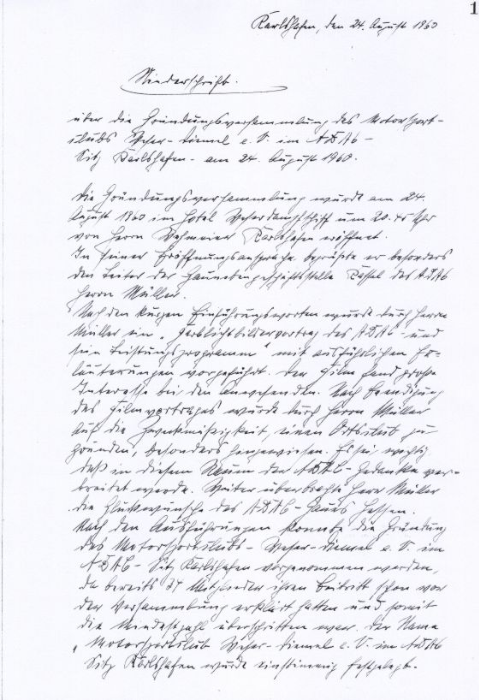 1
Karlshafen, den 24. August 1960
Niederschrift.
über die Gründungsversammlung des Motorsport-
clubs Weser-Diemel e.V. im ADAC-
Sitz Karlshafen. am 24. August 1960.
Die Gründungsversammlung wurde am 24.
August 1960 im Hotel Weserdampfschiff um 20.45 Uhr
von Herrn Wehmeier Karlshafen eröffnet.
In seiner Eröffnungsansprache begrüßte er besonders
den Leiter der Hauptgeschäftsstelle Kassel des ADAC
Herrn Müller.
Nach den kurzen Einführungsworten wurde durch Herrn
Müller ein „Farblichtbildervortrag des ADAC und
sein Leistungsprogramm" mit ausführlichen Er-
läuterungen vorgeführt. Der Film fand große
Interesse bei den Anwesenden. Nach Beendigung
des Filmvortrages wurde durch Herrn Müller
auf die Zweckmäßigkeit, einen Ortsclub zu
gründen, besonders hingewiesen. Es sei wichtig
daß in diesem Raum der ADAC-Gedanke ver-
breitet werde. Weiter überbrachte Herr Müller
die Glückwünsche des ADAC-Gaues Hessen.
Nach den Ausführungen konnte die Gründung
des Motorsportclubs-Weser-Diemel e.V. im
ADAC-Sitz Karlshafen vorgenommen werden,
da bereits Mitglieder ihren Beitritt schon vor
der Versammlung erklärt hatten und somit
die Mindestzahl überschritten war. Der Name
„Motorsportclub Weser-Diemel e.V. im ADAC
Sitz Karlshafen wurde einstimmig festgelegt.